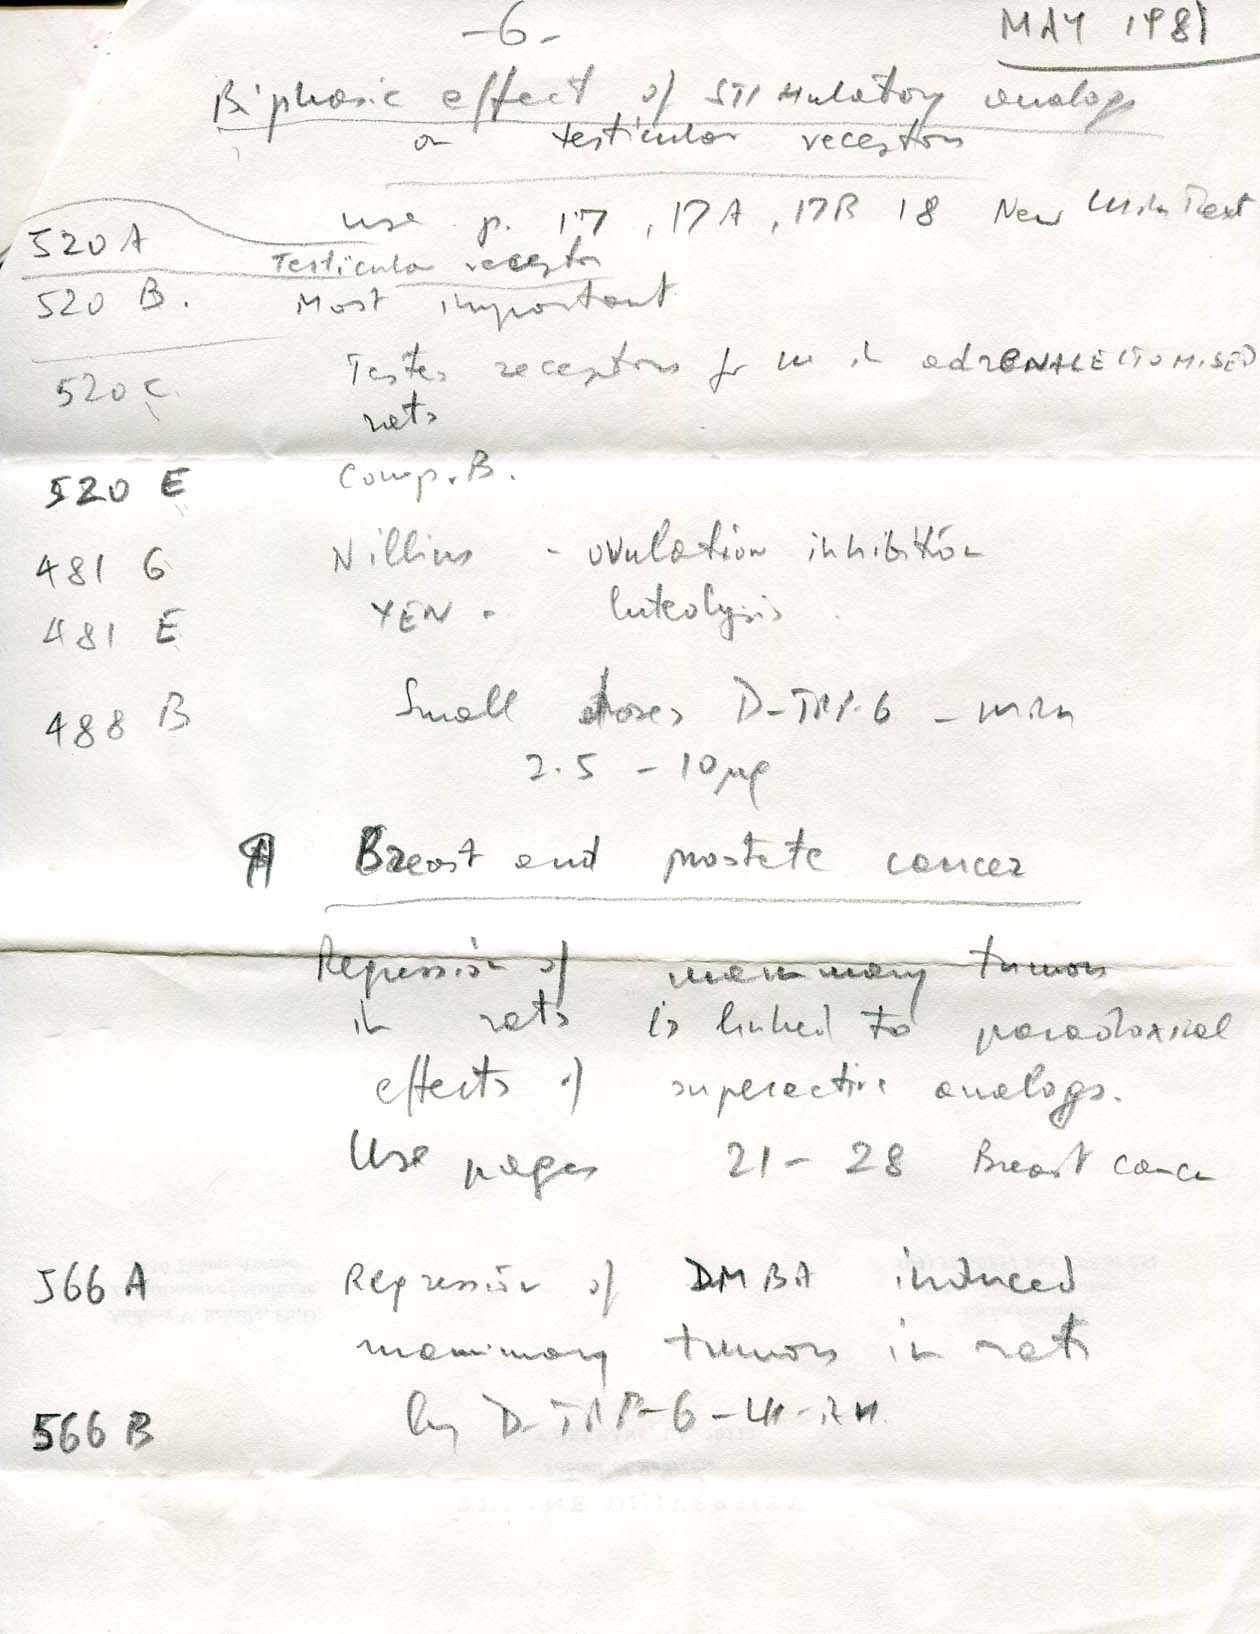 -6-
MAY 1981
Biphasic effect of STIMulatory analogs
on testicular receptors
use p. 17, 17A, 17B 18 New LHRH Text
520 A Testicular receptor
520 B. Most important
520 C. Testes receptors for LH in adRENALECTOMISED
rats
520 E Comp. B.
481 G Nillius - ovulation inhibition
481 E YEN - luteolysis
488 B Small doses D-TRP-6 - LHRH
2.5 - 10 µg
Breast and prostate cancer
Regression of mammary tumors
in rats is linked to paradoxical
effects of superactive analogs.
Use pages 21-28 Breast cancer
566 A Regression of DMBA induced
mammary tumors in rats
566 B by D-TRP-6-LH-RH.